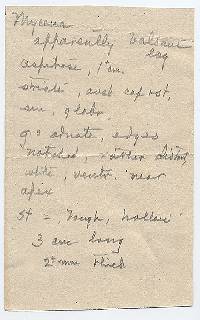 Mycena
apparently
caespitose, 1 cm.
striate, avel cap rot.
um, glabr
gs adnate, edges
notched, rather distant
white, ventr. near
apex
st = tough, hollow
3 cm long
2 mm thick